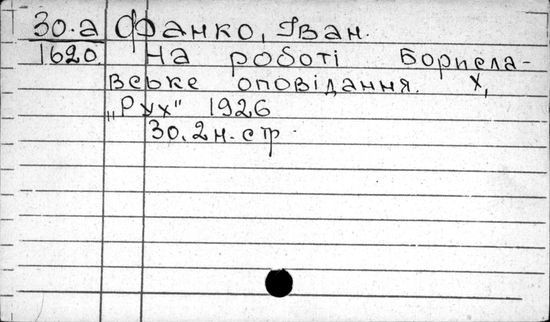 30.а Франко, Іван.
1620. На роботі Борисла-
вське оповідання. Х,
„Рух" 1926
30.2н.стр.